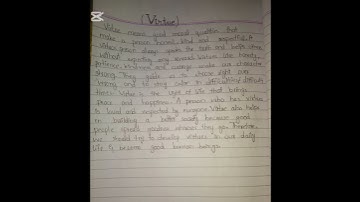 (Virtue)
Virtue means good moral qualities that
make a person honest, kind and respectful. A
virtues person always speaks the truth and helps others
without expecting any reward. Virtues like honesty,
patience, kindness and courage make our character
strong. They guide us to choose right over
wrong and be stay calm in difficult
times. Virtue is the light of life that brings
peace and happiness. A person who has virtue
is loved and respected by everyone. Virtue also helps
in building a better society because good
people spread goodness wherever they go. Therefore,
we should try to develop virtues in our daily
life & become good human beings.